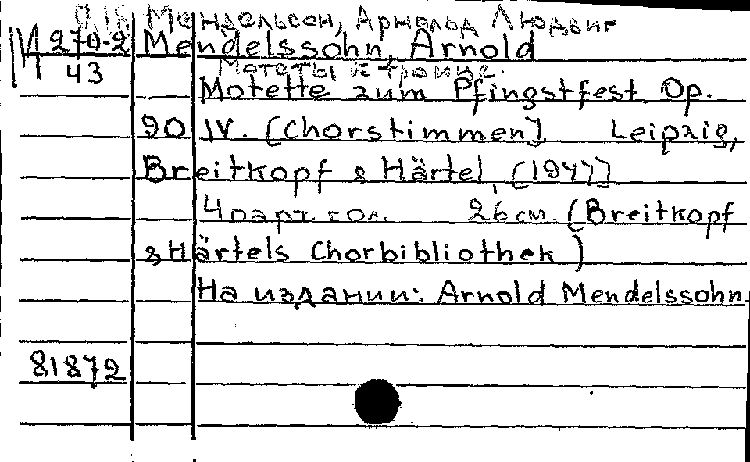 Мендельсон, Арнольд Людвиг
И 270-2 Mendelssohn, Arnold
43 Мотеты к троице.
Motette zum Pfingstfest Op.
90 IV. [Chorstimmen] Leipzig,
Breitkopf & Härtel, [1947]
4 парт. гол. 26 см. (Breitkopf
& Härtels Chorbibliothek)
На издании: Arnold Mendelssohn.
81872